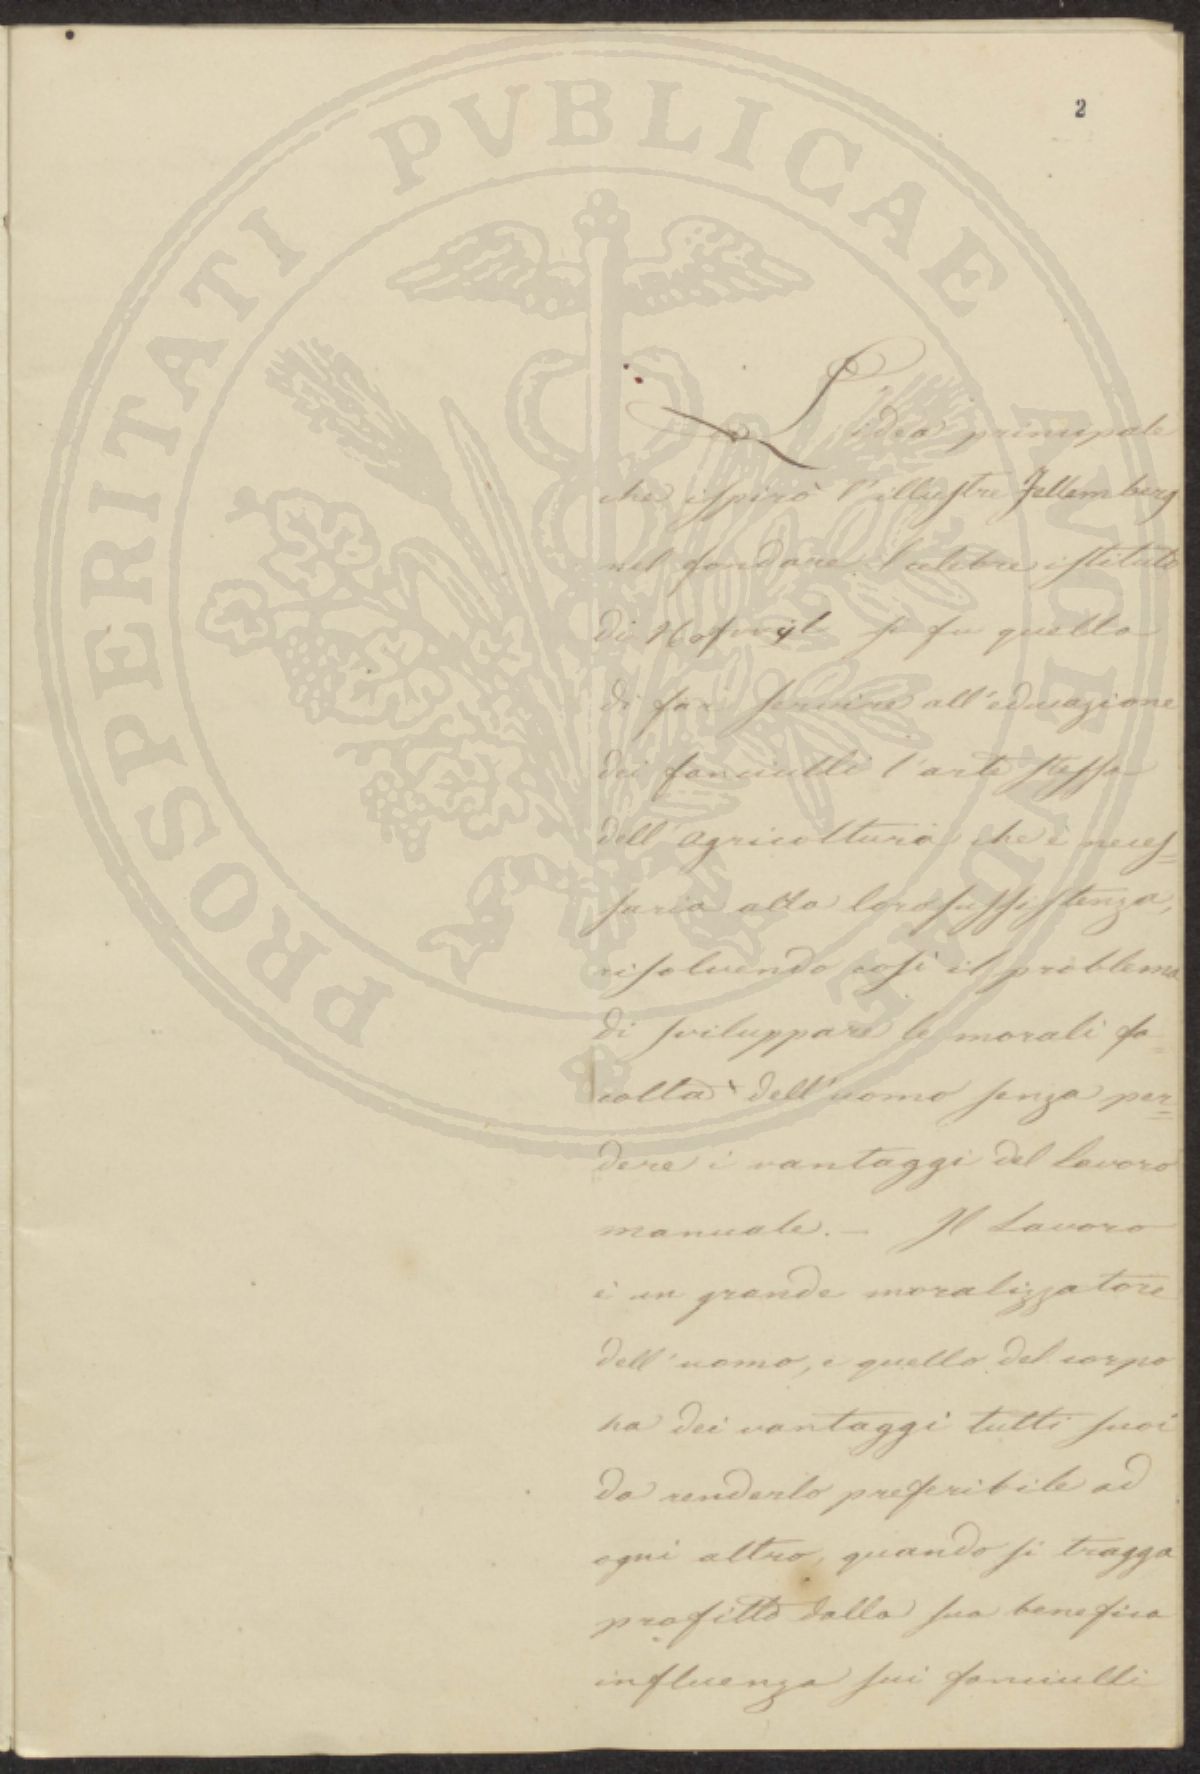 2
PROSPERITATI PUBLICAE AUGENDAE
L'idea principale
che ispirò l'illustre Fellemberg
nel fondare il celebre istituto
di Hofwijl si fu quella
di far servire all'educazione
dei fanciulli l'arte stessa
dell'agricoltura che è neces=
saria alla loro sussistenza,
risolvendo così il problema
di sviluppare le morali fa=
coltà dell'uomo senza per=
dere i vantaggi del lavoro
manuale. — Il Lavoro
è un grande moralizzatore
dell'uomo, e quello del corpo
ha dei vantaggi tutti suoi
da renderlo preferibile ad
ogni altro, quando si tragga
profitto dalla sua benefica
influenza sui fanciulli